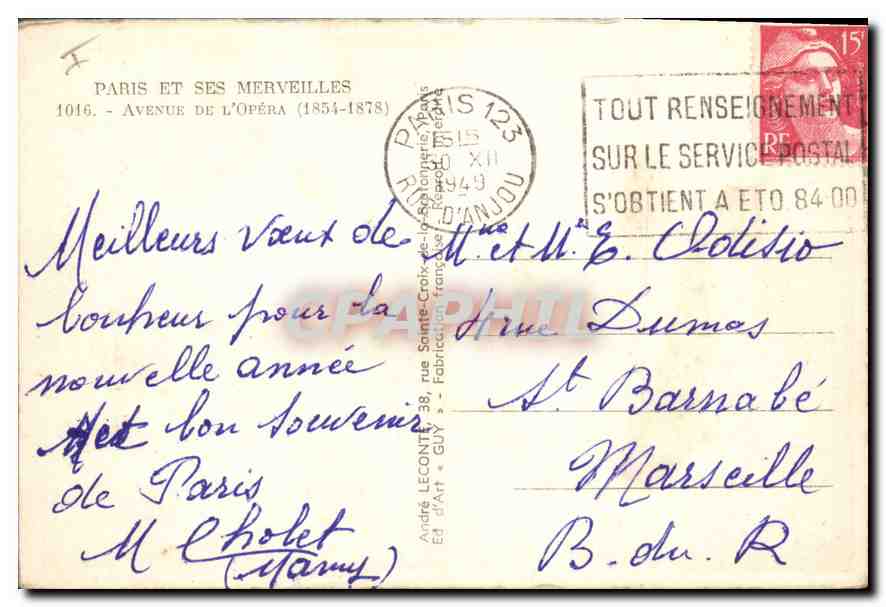 PARIS ET SES MERVEILLES
1016. - AVENUE DE L'OPÉRA (1854-1878)
PARIS 123
15H15
30 XII
1949
RUE D'ANJOU
15F
RF
TOUT RENSEIGNEMENT
SUR LE SERVICE POSTAL
S'OBTIENT A ETO. 84-00
Meilleurs vœux de
bonheur pour la
nouvelle année
et bon souvenir
de Paris
M Cholet
André LECONTE, 38, rue Sainte-Croix-de-la-Bretonnerie, Paris
Ed d'Art « GUY » - Fabrication française
Mme et Mr E. Odisio
4 rue Dumas
St. Barnabé
Marseille
B. du. R
CPAPHIL